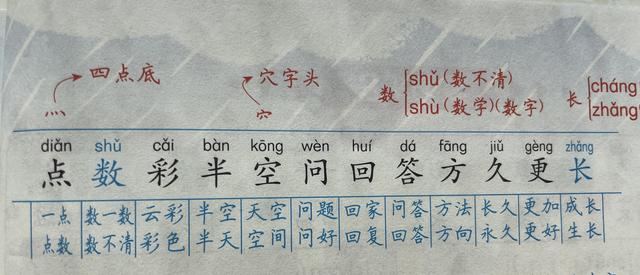 灬 四点底
穴 穴字头
数 shǔ(数不清)
shù(数学)(数字)
长 cháng
zhǎng
diǎn shǔ cǎi bàn kōng wèn huí dá fāng jiǔ gèng zhǎng
点 数 彩 半 空 问 回 答 方 久 更 长
一点 数一数 云彩 半空 天空 问题 回家 问答 方法 长久 更加 成长
点数 数不清 彩色 半天 空间 问好 回复 回答 方向 永久 更好 生长